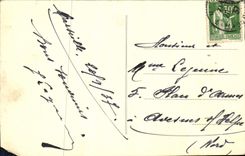 Marseille 20/9/37
Bons Souvenirs
Monsieur et
Mme Lejeune
5. Place d'Armes
Avesnes s/ Helpe
(Nord)